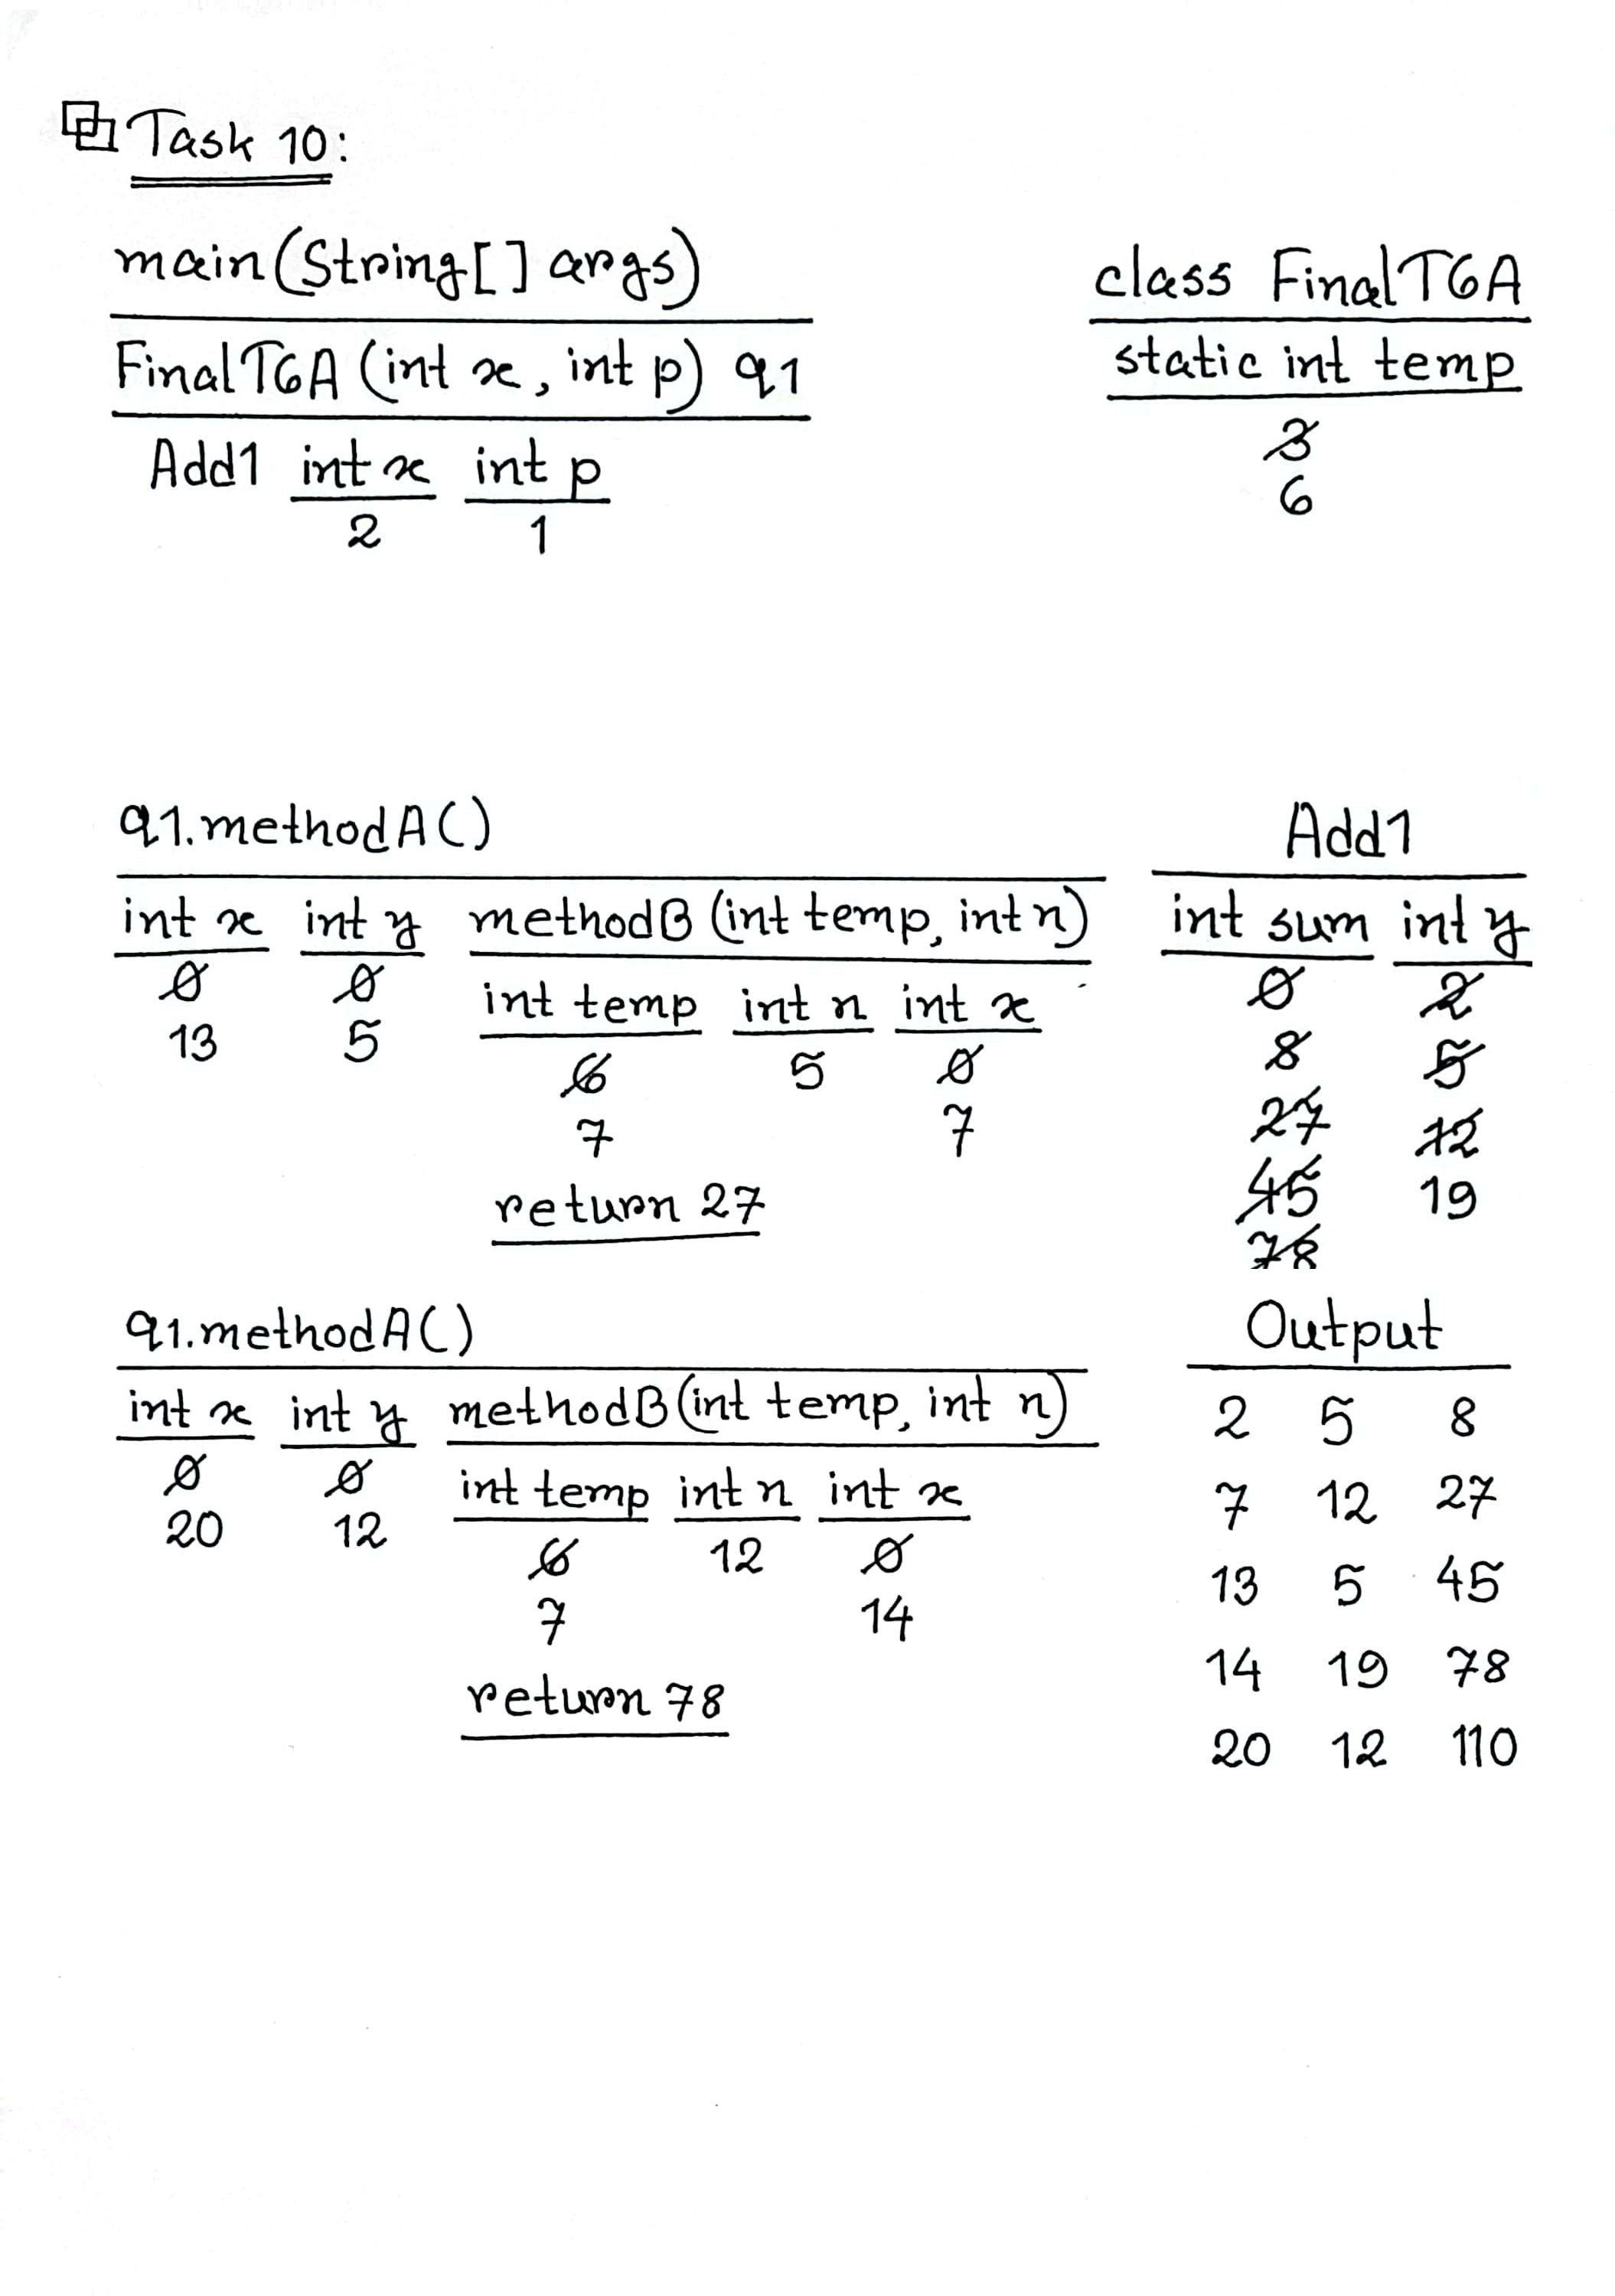 Task 10:
main(String[] args)
FinalT6A (int x, int p) q1
Add1 int x int p
2 1
class FinalT6A
static int temp
3
6
q1.methodA()
int x int y methodB (int temp, int n)
0 0
13 5
int temp int n int x
6 5 0
7 7
return 27
Add1
int sum int y
0 2
8 5
27 12
45 19
78
q1.methodA()
int x int y methodB(int temp, int n)
0 0
20 12
int temp int n int x
6 12 0
7 14
return 78
Output
2 5 8
7 12 27
13 5 45
14 19 78
20 12 110